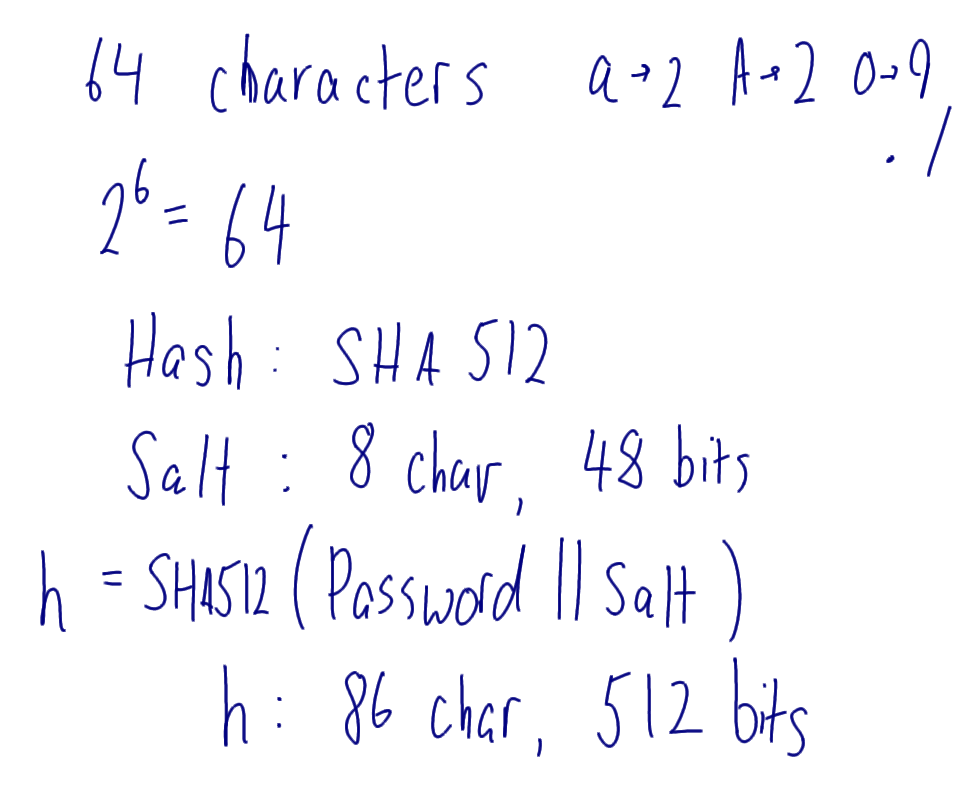 64 characters a→z A→Z 0→9
. /
2^6 = 64
Hash : SHA 512
Salt : 8 char, 48 bits
h = SHA512 (Password || Salt)
h : 86 char, 512 bits